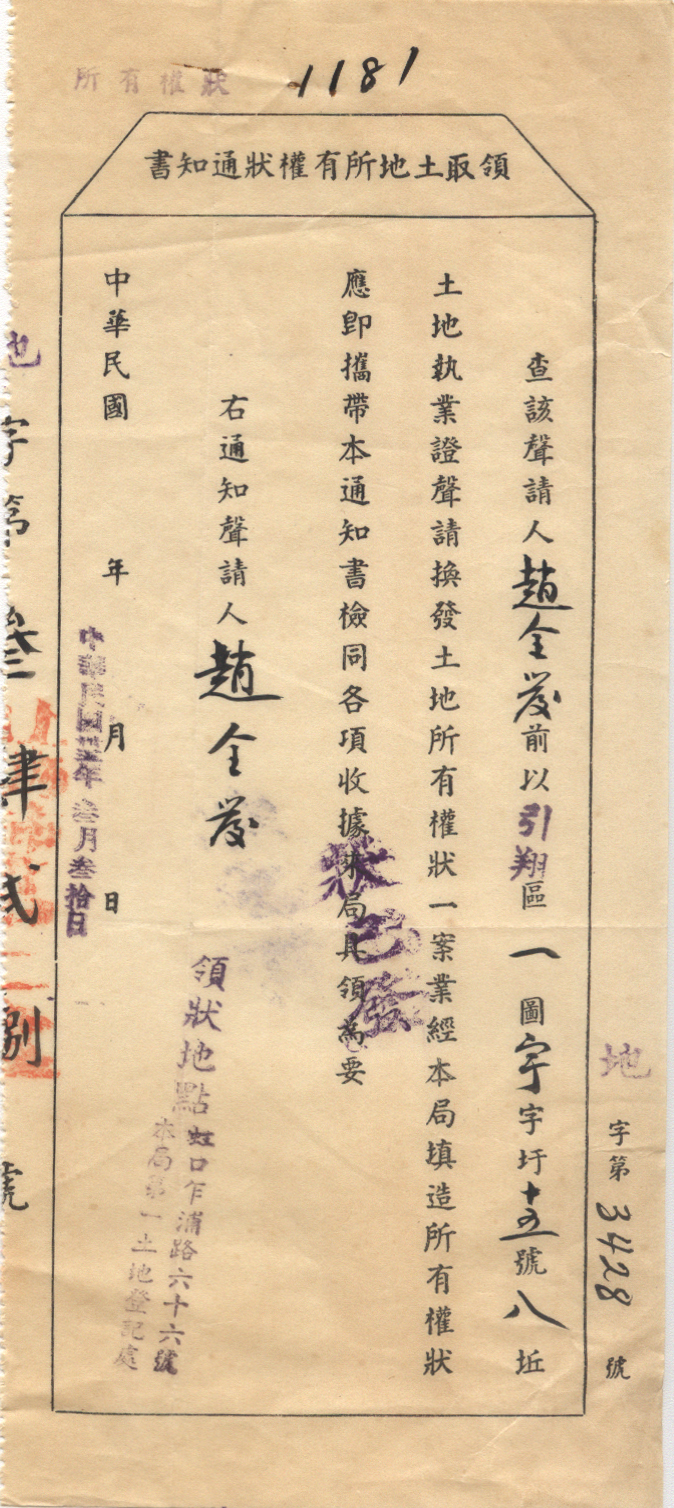 所有權狀
1181
領取土地所有權狀通知書
地字第3428號
查該聲請人趙全發前以引翔區一圖宇字圩十五號八坵
土地執業證聲請換發土地所有權狀一案業經本局填造所有權狀
應卽攜帶本通知書檢同各項收據來局具領為要
狀已發
右通知聲請人趙全發
領狀地點虹口乍浦路六十六號
本局第一土地登記處
中華民國 年 月 日
中華民國 年叁月叁拾日
地字第叁肆弍捌號